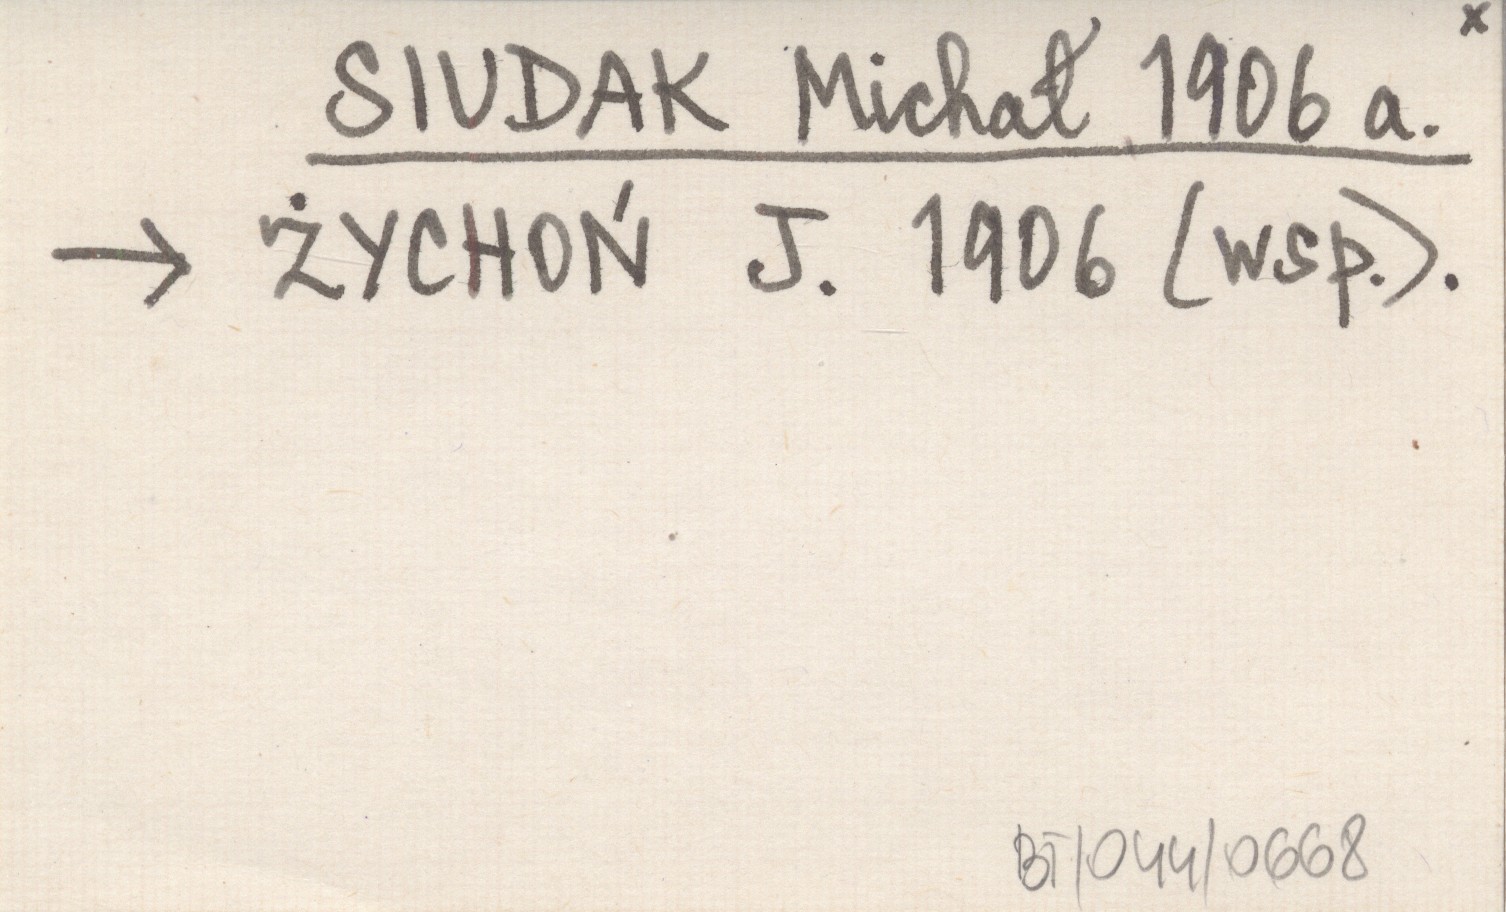 x
SIUDAK Michał 1906 a.
→ ŻYCHOŃ J. 1906 (wsp.).
BT/044/0668